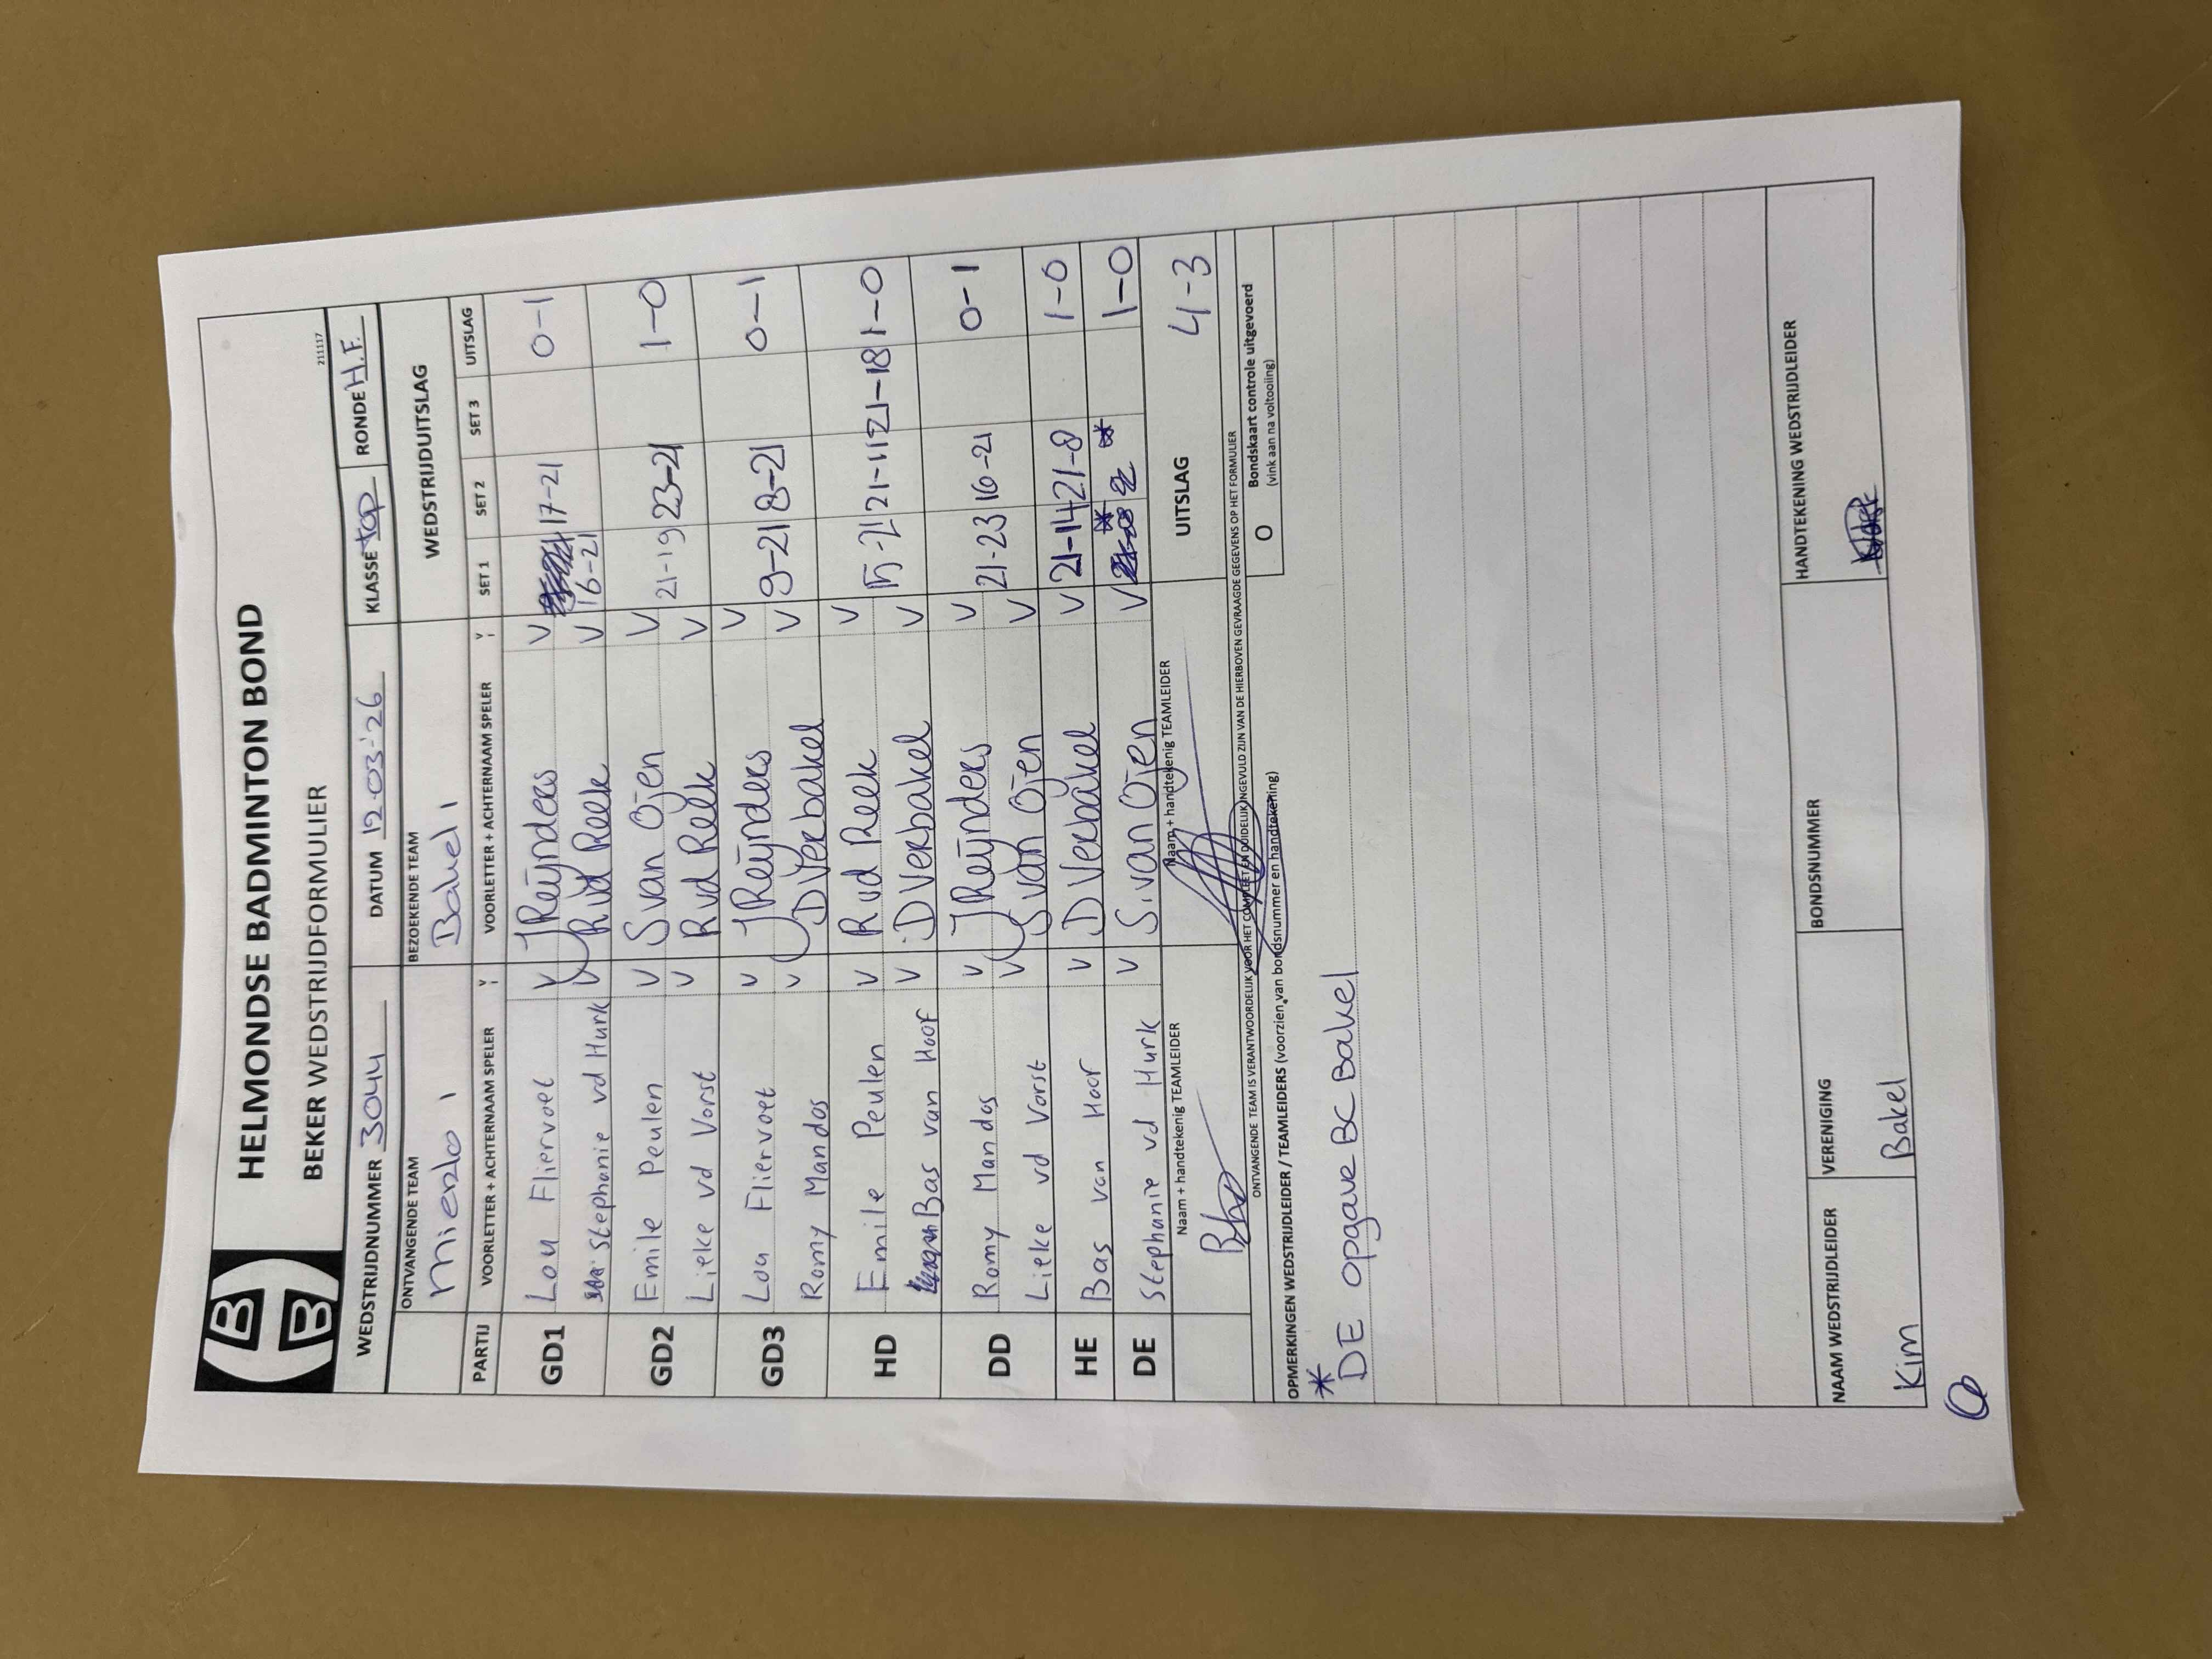 HELMONDSE BADMINTON BOND
BEKER WEDSTRIJDFORMULIER
211117
WEDSTRIJDNUMMER 3044 DATUM 12-03-'26 KLASSE top RONDE H.F.
ONTVANGENDE TEAM BEZOEKENDE TEAM WEDSTRIJDUITSLAG
Mierlo 1 Bakel 1
PARTIJ VOORLETTER + ACHTERNAAM SPELER VOORLETTER + ACHTERNAAM SPELER SET 1 SET 2 SET 3 UITSLAG
GD1 Lou Fliervoet V J Reijnders V 17-21 0-1
Stephanie vd Hurk V R vd Reek V 16-21
GD2 Emile Peulen V S van Oijen V 21-19 23-21 1-0
Lieke vd Vorst V R vd Reek V
GD3 Lou Fliervoet V J Reijnders V 9-21 8-21 0-1
Romy Mandos V D Verbakel V
HD Emile Peulen V R vd Reek V 15-21 21-11 21-18 1-0
Bas van Hoof V D Verbakel V
DD Romy Mandos V J Reijnders V 21-23 16-21 0-1
Lieke vd Vorst V S van Oijen V
HE Bas van Hoof V D Verbakel V 21-14 21-8 1-0
DE Stephanie vd Hurk V S. van Oijen V * * 1-0
Naam + handtekenig TEAMLEIDER Naam + handtekenig TEAMLEIDER UITSLAG 4-3
ONTVANGENDE TEAM IS VERANTWOORDELIJK VOOR HET COMPLEET EN DUIDELIJK INGEVULD ZIJN VAN DE HIERBOVEN GEVRAAGDE GEGEVENS OP HET FORMULIER
O Bondskaart controle uitgevoerd
(vink aan na voltooiing)
OPMERKINGEN WEDSTRIJDLEIDER / TEAMLEIDERS (voorzien van bondsnummer en handtekening)
*
DE opgave BC Bakel
NAAM WEDSTRIJDLEIDER VERENIGING BONDSNUMMER HANDTEKENING WEDSTRIJDLEIDER
Kim Bakel